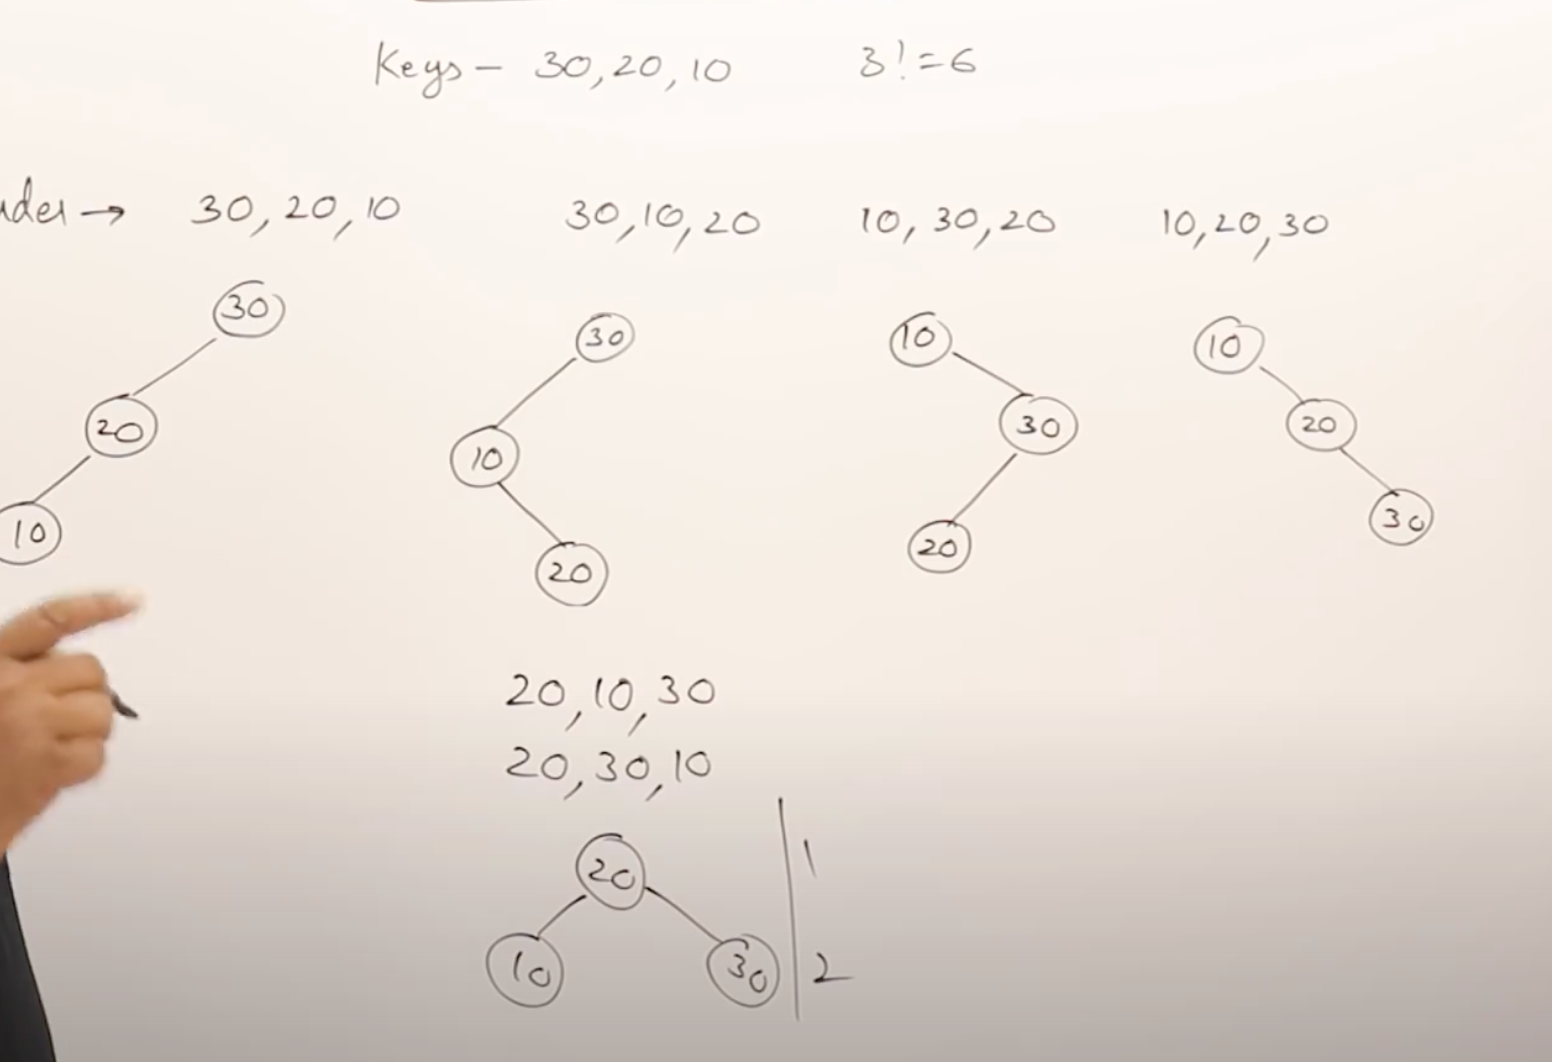 Keys – 30, 20, 10 3! = 6
30, 20, 10 30, 10, 20 10, 30, 20 10, 20, 30
30 30 10 10
20 10 30 20
10 20 20 30
20, 10, 30
20, 30, 10
20 1
10 30 2